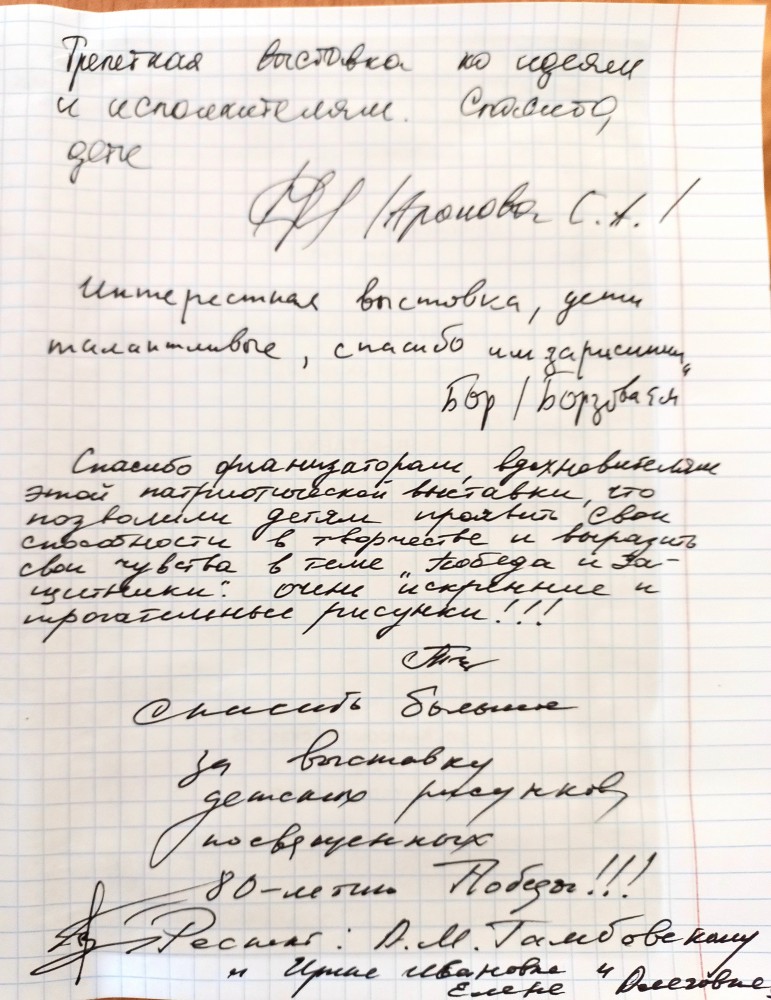 Трепетная выставка по идеям
и исполнителям. Спасибо,
дети
/Аронова С.А./
Интерестная выстовка, дети
талантливые, спасибо им за рисунки
Бор /Борзовая
Спасибо организаторам, вдохновителям
этой патриотической выставки, что
позволили детям проявить свои
способности в творчестве и выразить
свои чувства в теме „Победа и За-
щитники". очень искренние и
трогательные рисунки!!!
Спасибо большое
за выставку
детских рисунков,
посвященных
80-летию Победы!!!
Респект: А.М. Тамбовскому
" Ирине Ивановне " Олеговне
Елене